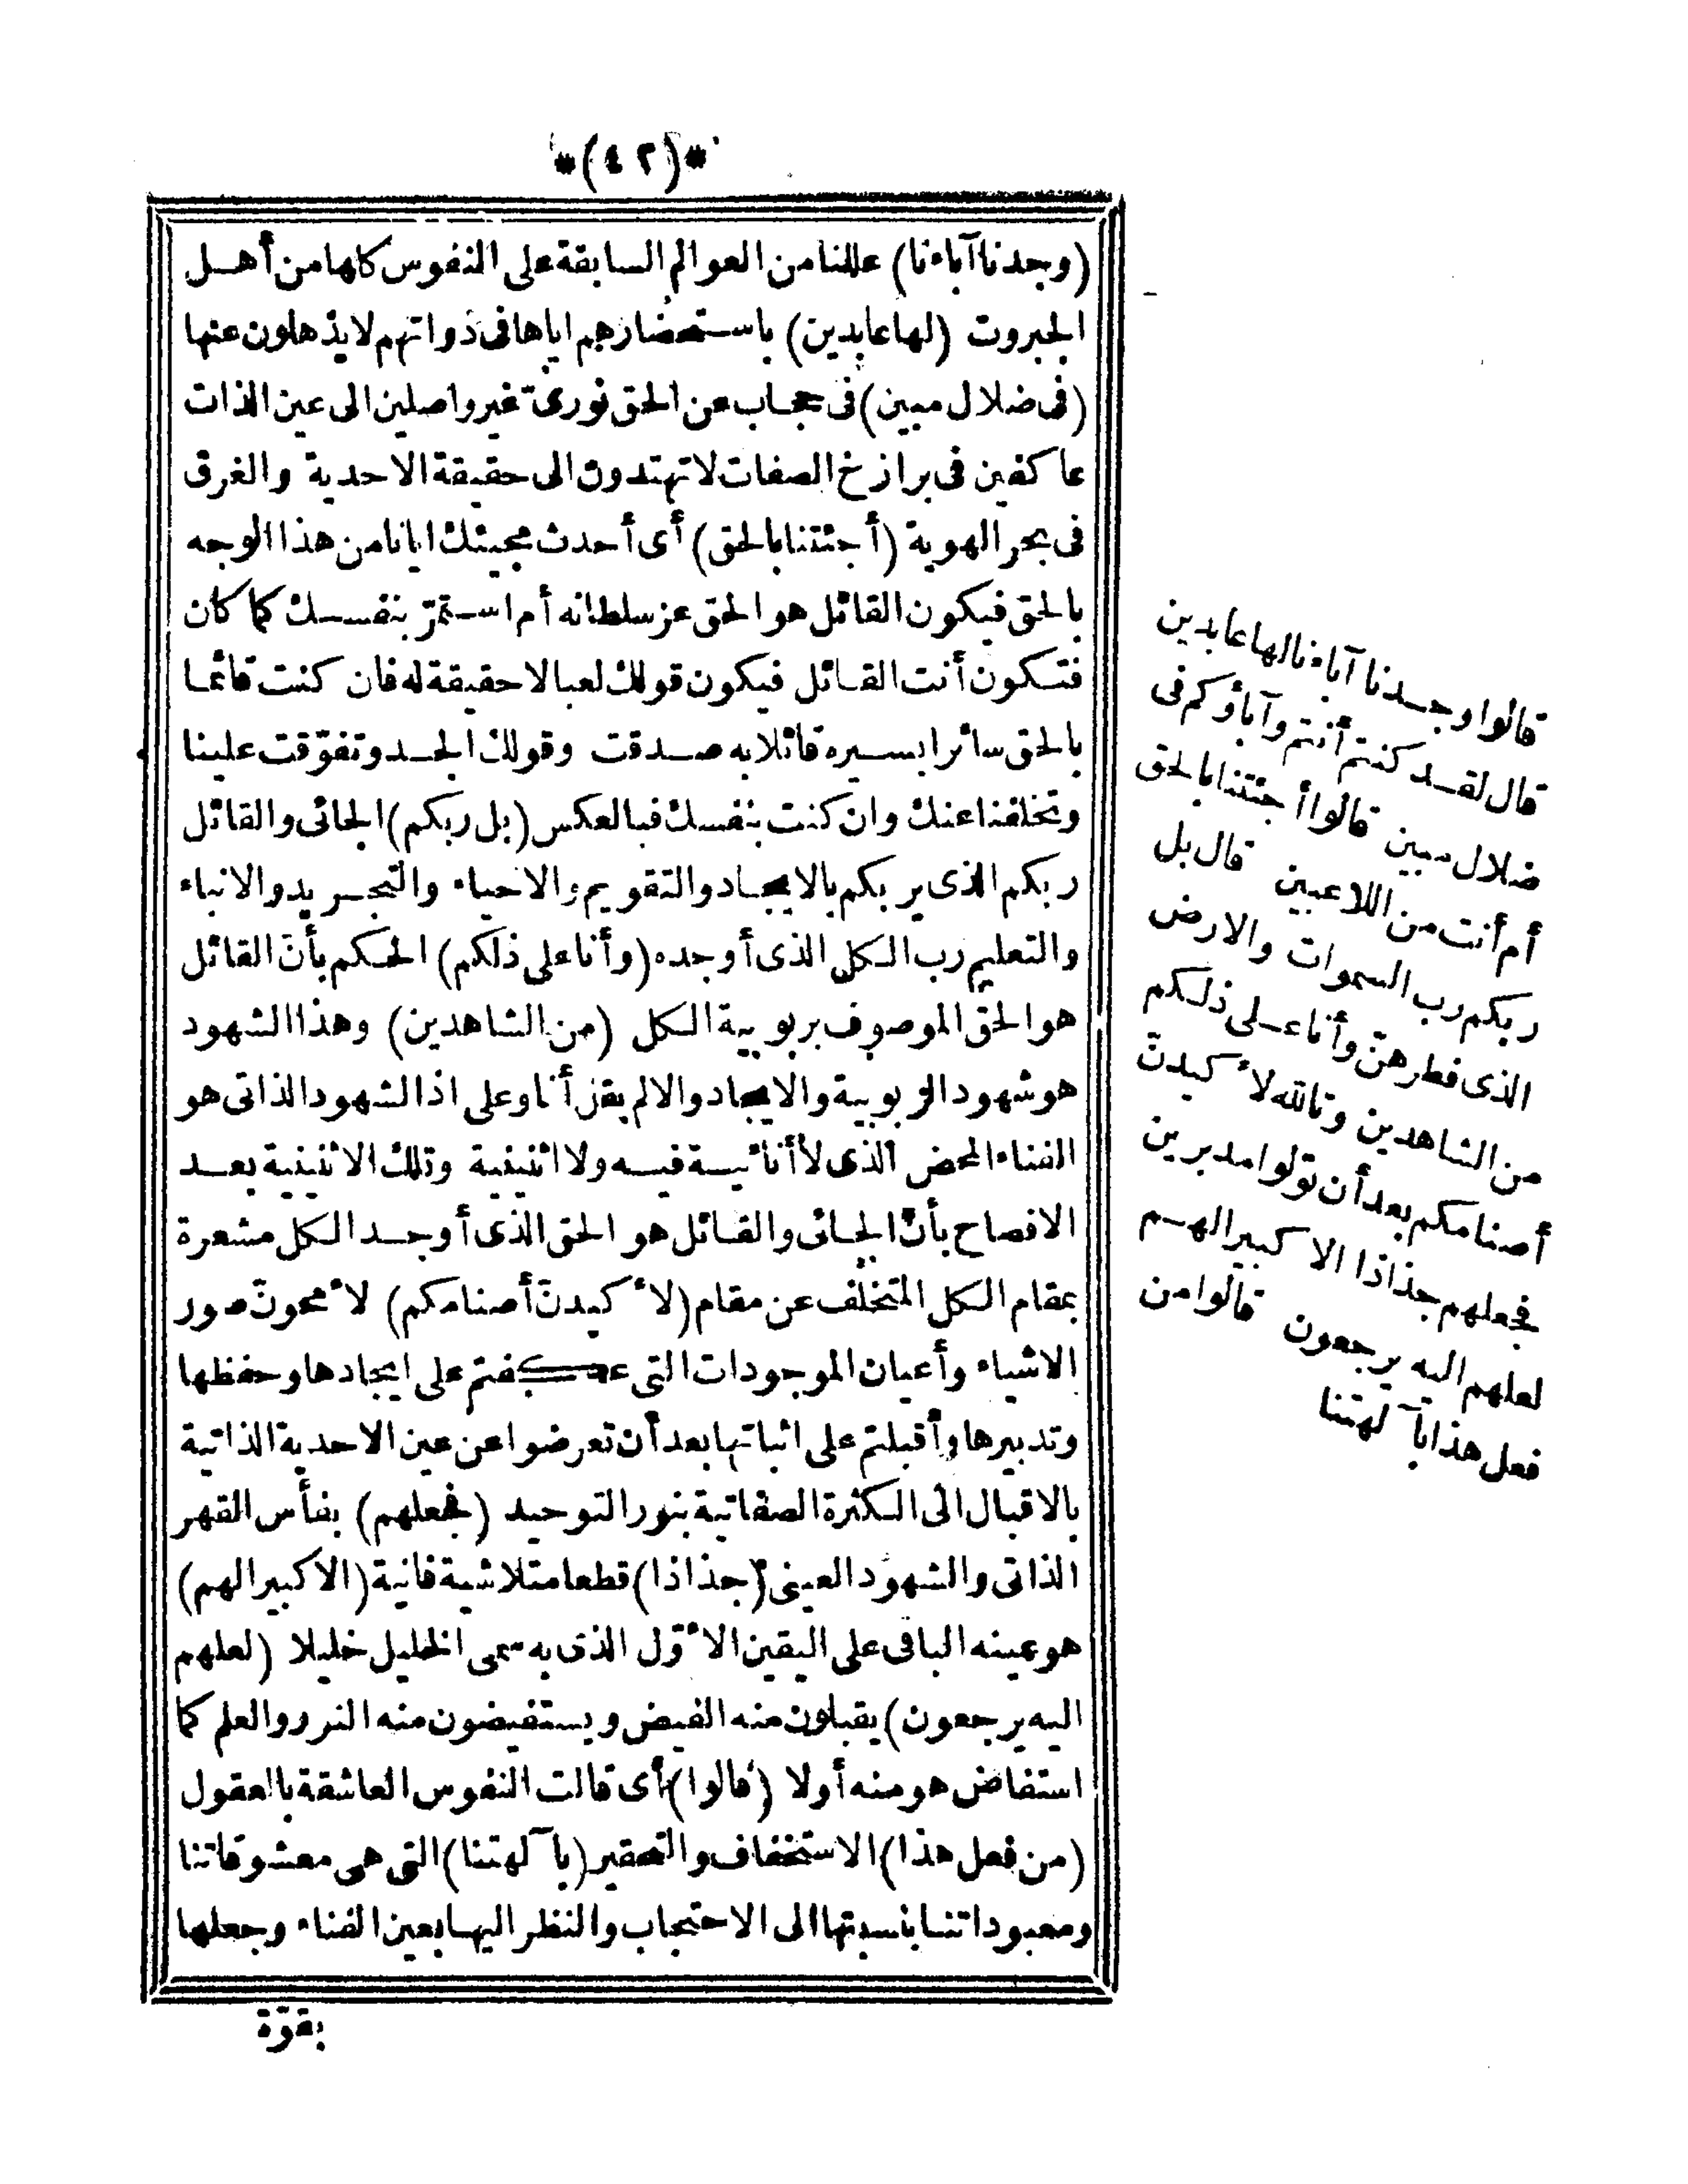 *(٤٢)*
(وجدنا آباءنا) عللنا من العوالم السابقة على النفوس كلها من أهل
الجبروت (لها عابدين) باستحضارهم اياها فى ذواتهم لا يذهلون عنها
(فى ضلال مبين) فى حجاب عن الحق نورىّ غير واصلين الى عين الذات
عاكفين فى برازخ الصفات لا تهتدون الى حقيقة الاحدية والغرق
فى بحر الهوية (أجئتنا بالحق) أى أحدث مجيئك ايانا من هذا الوجه
بالحق فيكون القائل هو الحق عز سلطانه أم استمرّ بنفسك كما كان
فتكون أنت القائل فيكون قولك لعبا لا حقيقة له فان كنت قائما
بالحق سائرا بسيره قائلا به صدقت وقولك الجد وتفوّقت علينا
وتخلفنا عنك وان كنت بنفسك فبالعكس (بل ربكم) الجائى والقائل
ربكم الذى يربكم بالايجاد والتقويم والاحياء والتجريد والانباء
والتعليم رب الكل الذى أوجده (وأنا على ذلكم) الحكم بأن القائل
هو الحق الموصوف بربوبية الكل (من الشاهدين) وهذا الشهود
هو شهود الربوبية والايجاد والا لم يقل أنا وعلى اذ الشهود الذاتى هو
الفناء المحض الذى لا أنائية فيه ولا اثنينية وتلك الاثنينية بعد
الافصاح بأنّ الجائى والقائل هو الحق الذى أوجد الكل مشعرة
بمقام الكل المتخلف عن مقام (لأكيدنّ أصنامكم) لأمحونّ صور
الاشياء وأعيان الموجودات التى عكفتم على ايجادها وحفظها
وتدبيرها وأقبلتم على اثباتها بعد أن تعرضوا عن عين الاحدية الذاتية
بالاقبال الى الكثرة الصفاتية بنور التوحيد (فجعلهم) بفأس القهر
الذاتى والشهود العينى (جذاذا) قطعا متلاشية فانية (الا كبيرا لهم)
هو عينه الباقى على اليقين الأوّل الذى به سمى الخليل خليلا (لعلهم
اليه يرجعون) يقبلون منه الفيض ويستفيضون منه النور والعلم كما
استفاض هو منه أولا (قالوا) أى قالت النفوس العاشقة بالعقول
(من فعل هذا) الاستخفاف والتحقير (بآلهتنا) التى هى معشوقاتنا
ومعبوداتنا بنسبتها الى الاحتجاب والنظر اليها بعين الفناء وجعلها
بقوّة
قالوا وجدنا آباءنا لها عابدين
قال لقد كنتم أنتم وآباؤكم فى
ضلال مبين قالوا أجئتنا بالحق
أم أنت من اللاعبين قال بل
ربكم رب السموات والارض
الذى فطرهنّ وأنا على ذلكم
من الشاهدين وتالله لأكيدنّ
أصنامكم بعد أن تولوا مدبرين
فجعلهم جذاذا الا كبيرا لهم
لعلهم اليه يرجعون قالوا من
فعل هذا بآلهتنا